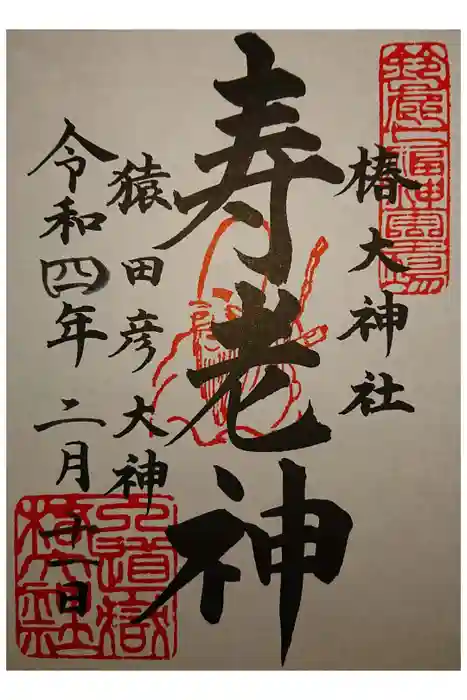 鈴鹿七福神霊場
椿大神社
寿老神
猿田彦大神
令和四年 二月廿一日
入道嶽